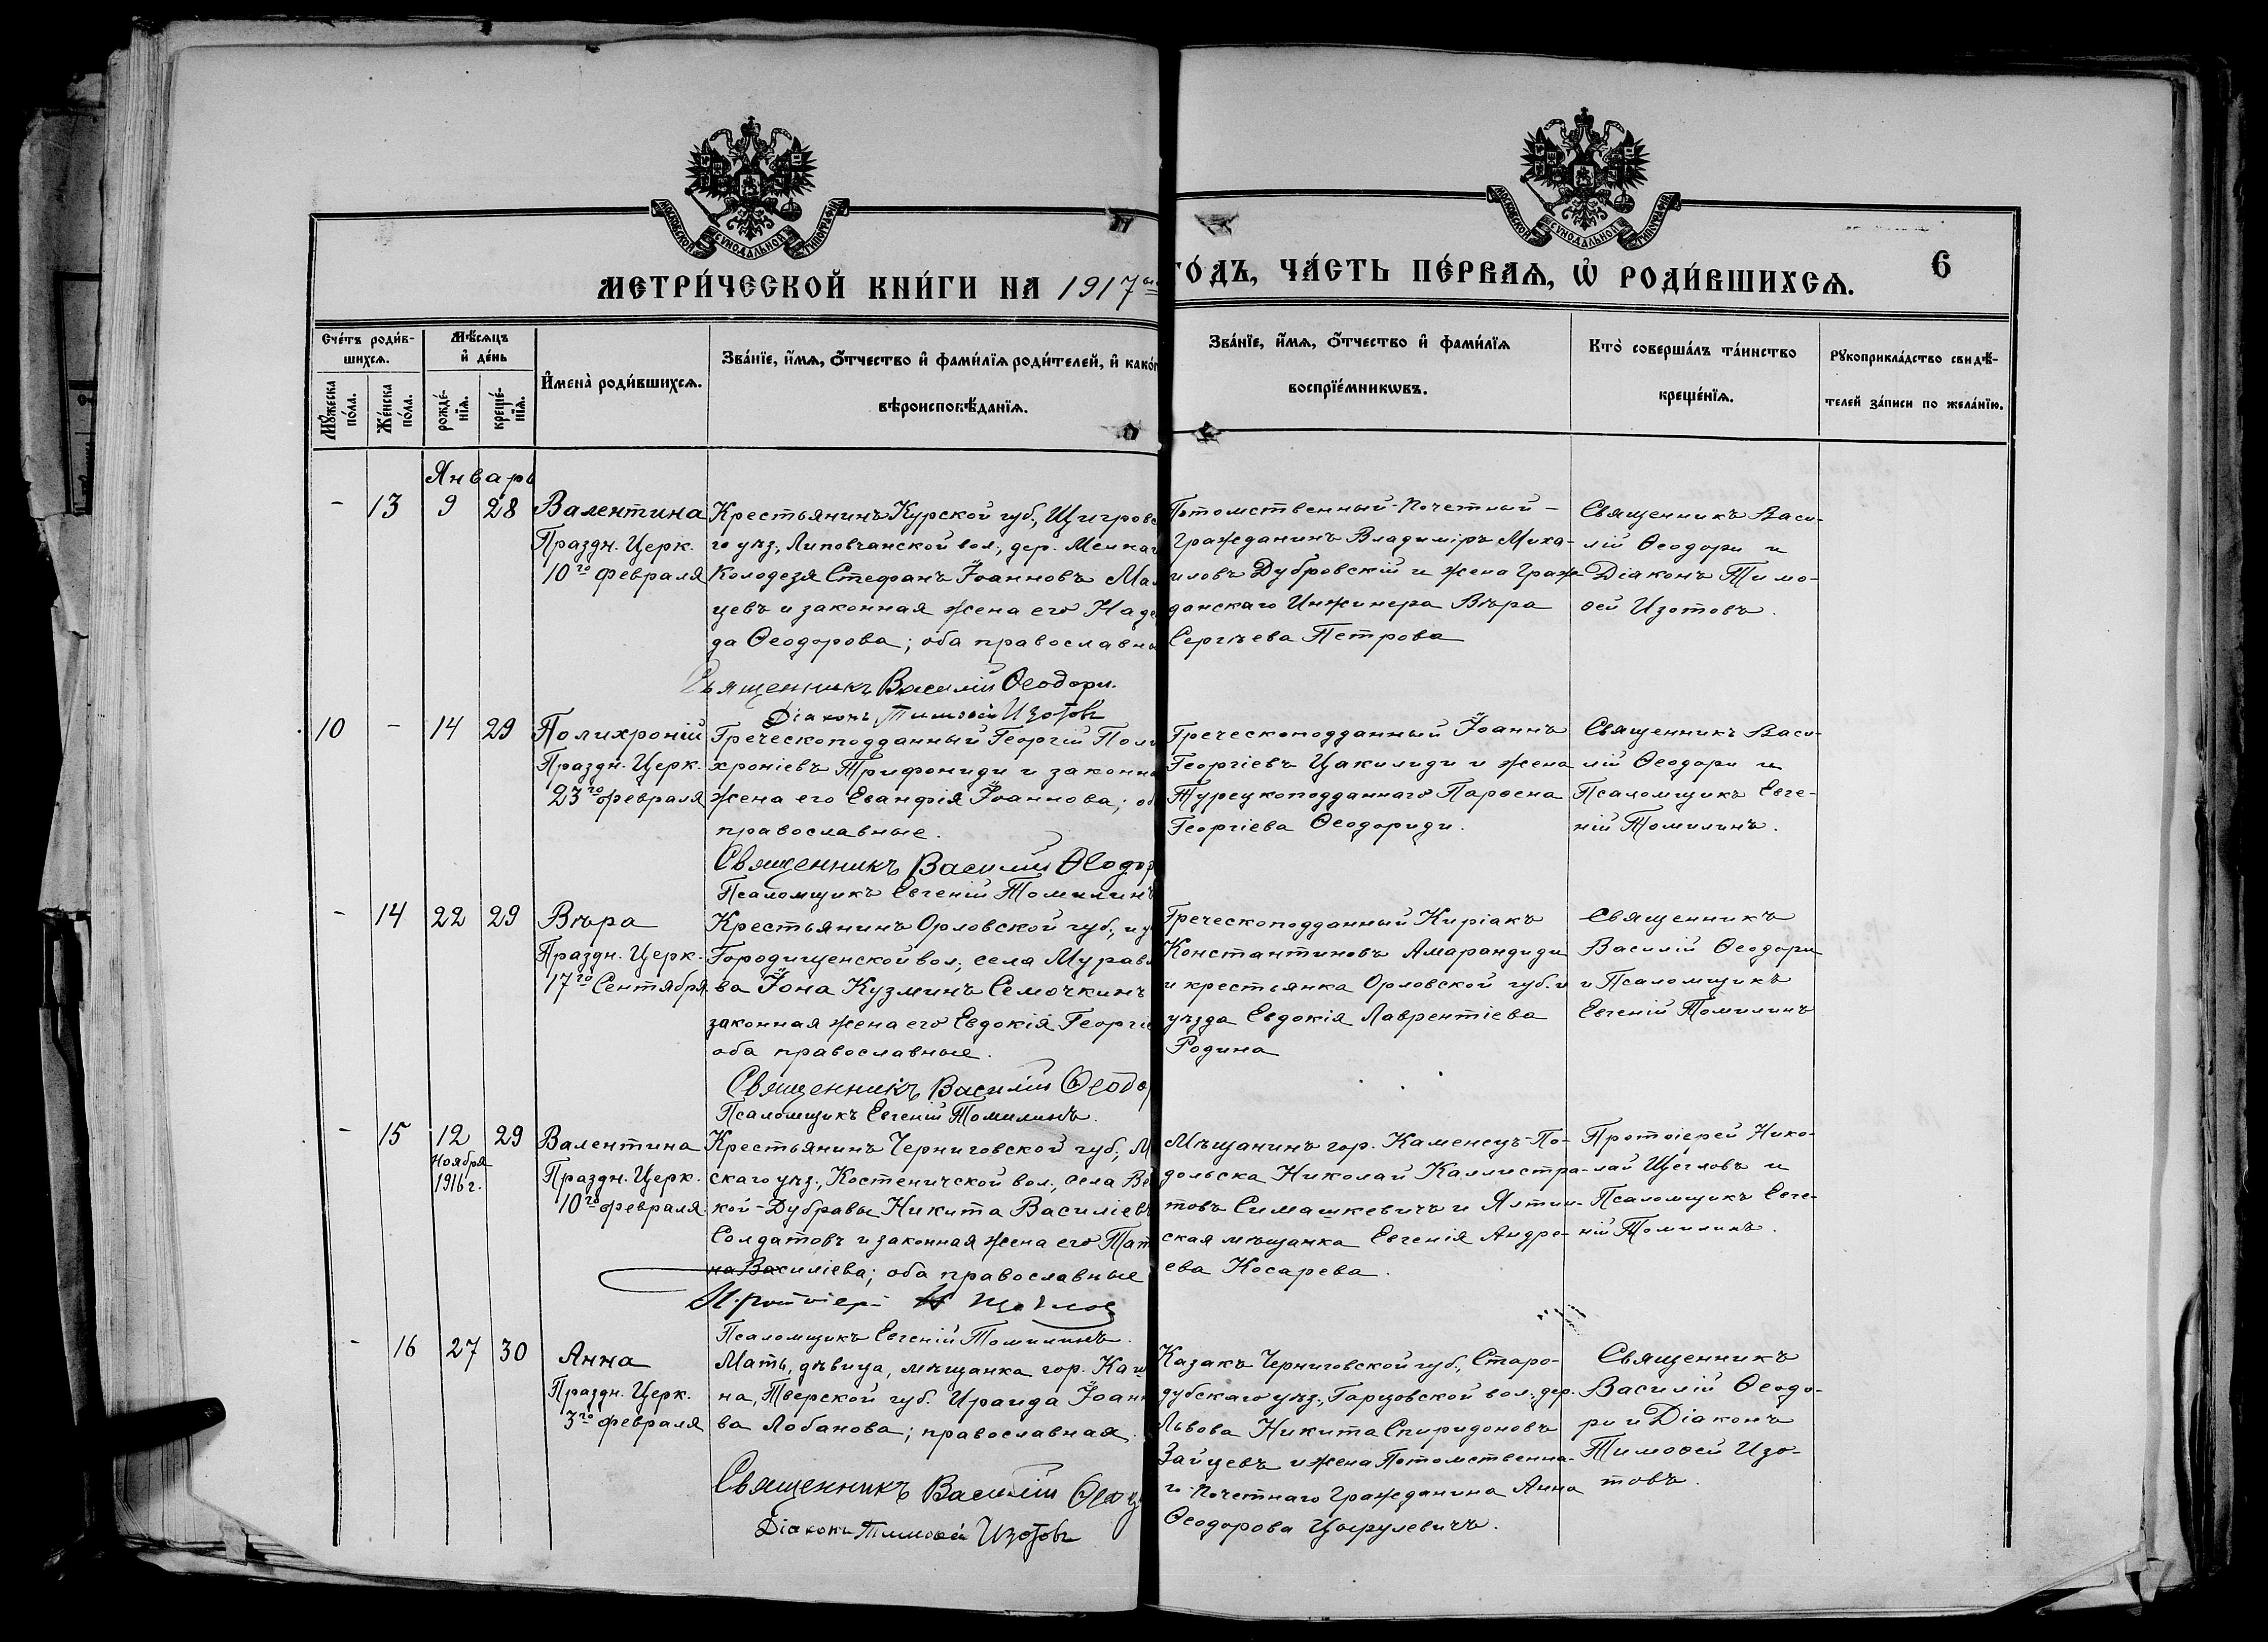 МОСКОВСКОЙ СУНОДАЛЬНОЙ ТИПОГРАФІИ
МОСКОВСКОЙ СУНОДАЛЬНОЙ ТИПОГРАФІИ
МЕТРИ́ЧЕСКОЙ КНИ́ГИ НА 1917ый
ГО́ДЪ, ЧА́СТЬ ПЕ́РВАѦ, Ѡ РОДИ́ВШИХСѦ.
6
Сче́тъ роди́в-
шихсѧ.
Мꙋ́жеска по́ла.
Же́нска по́ла.
Мѣ́сѧцъ
и҆ де́нь
рожде́-
нїѧ.
креще́-
нїѧ.
И҆мена̀ роди́вшихсѧ.
Зва́нїе, и҆́мѧ, ѻ҆́тчество и҆ фами́лїѧ роди́телей, и҆ како́г
вѣроисповѣ́данїѧ.
Зва́нїе, и҆́мѧ, ѻ҆́тчество и҆ фами́лїѧ
воспрїе́мникѡвъ.
Кто̀ соверша́лъ та́инство
креще́нїѧ.
Рꙋкоприкла́дство свидѣ́-
телей за́писи по жела́нїю.
Январь
- 13 9 28
Валентина
Праздн. Церк.
10го февраля
Крестьянинъ Курской губ., Щигровс
го уѣз., Липовчанской вол., дер. Мелкаг
Колодезя Стефанъ Іоанновъ Мал
цевъ и законная жена его Наде
да Ѳеодорова; оба православны
Священникъ Василій Ѳеодори.
Діаконъ Тимоѳей Изотовъ
Потомственный-Почетный-
Гражданинъ Владиміръ Миха-
иловъ Дубровскій и жена Граж-
данскаго Инжинера Вѣра
Сергѣева Петрова
Священникъ Васи-
лій Ѳеодори и
Діаконъ Тимо-
ѳей Изотовъ.
10 - 14 29
Полихроній
Праздн. Церк.
23го февраля
Греческоподданный Георгій Поли
хроніевъ Трифониди и законна
жена его Еванѳія Іоаннова; об
православные.
Священникъ Василій Ѳеодор
Псаломщикъ Евгеній Томилинъ
Греческоподданный Іоаннъ
Георгіевъ Цакилиди и жена
Турецкоподданнаго Парѳена
Георгіева Ѳеодориди.
Священникъ Васи-
лій Ѳеодори и
Псаломщикъ Евге-
ній Томилинъ.
- 14 22 29
Вѣра
Праздн. Церк.
17го Сентября
Крестьянинъ Орловской губ., и у
Городищенской вол., села Муравл
ва Іона Кузминъ Семочкинъ
законная жена его Евдокія Георгіе
оба православные.
Священникъ Василій Ѳеодо
Псаломщикъ Евгеній Томилинъ.
Греческоподданный Киріакъ
Константиновъ Амарандиди
и крестьянка Орловской губ. и
уѣзда Евдокія Лаврентіева
Родина
Священникъ
Василій Ѳеодори
и Псаломщикъ
Евгеній Томилинъ
- 15 12 29
Ноября
1916 г.
Валентина
Праздн. Церк.
10го февраля
Крестьянинъ Черниговской губ., М
скаго уѣз., Костеничской вол., села Ве
кой-Дубравы Никита Василіевъ
Солдатовъ и законная жена его Тат
на Василіева; оба православные
Протоіерей Н Щегловъ
Псаломщикъ Евгеній Томилинъ.
Мѣщанинъ гор. Каменецъ-По-
дольска Николай Каллистра-
товъ Симашкевичъ и Ялтин-
ская мѣщанка Евгенія Андре-
ева Косарева.
Протоіерей Нико-
лай Щегловъ и
Псаломщикъ Евге-
ній Томилинъ.
- 16 27 30
Анна
Праздн. Церк.
3го февраля
Мать, дѣвица, мѣщанка гор. Каш
на, Тверской губ. Ираида Іоанн
ва Лобанова; православная.
Священникъ Василій Ѳеод
Діаконъ Тимоѳей Изотовъ
Казакъ Черниговской губ., Старо-
дубскаго уѣз., Гарцовской вол., дер.
Львова Никита Спиридоновъ
Зайцевъ и жена Потомственна-
го Почетнаго Гражданина Анна
Ѳеодорова Цырулевичъ.
Священникъ
Василій Ѳеодо-
ри и Діаконъ
Тимоѳей Изо-
товъ.